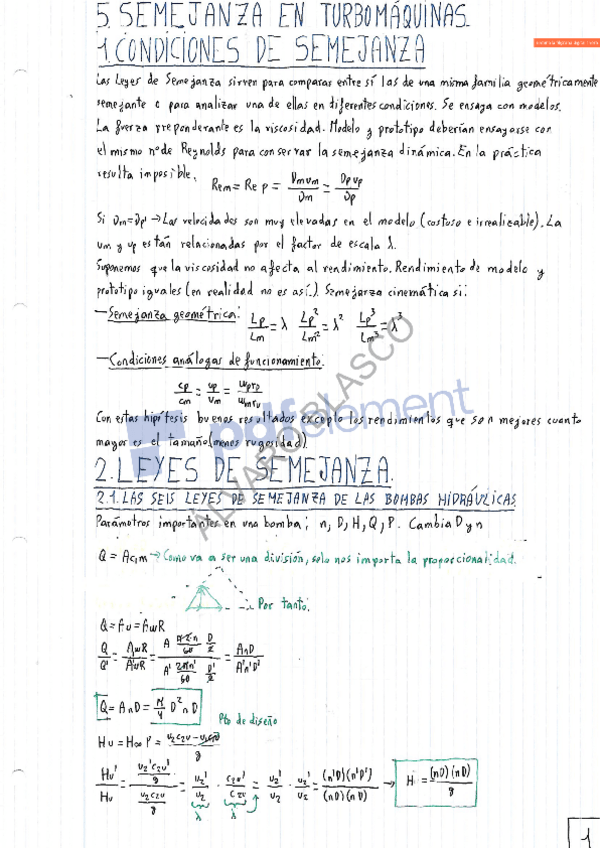 5. SEMEJANZA EN TURBOMÁQUINAS.
1. CONDICIONES DE SEMEJANZA
Las Leyes de Semejanza sirven para comparar entre sí las de una misma familia geométricamente
semejante o para analizar una de ellas en diferentes condiciones. Se ensaya con modelos.
La fuerza preponderante es la viscosidad. Modelo y prototipo deberían ensayarse con
el mismo nº de Reynolds para conservar la semejanza dinámica. En la práctica
resulta imposible.
Rem = Re p = Dm vm / νm = Dp vp / νp
Si νm = νp → Las velocidades son muy elevadas en el modelo (costoso e irrealizable). La
νm y νp están relacionadas por el factor de escala λ.
Suponemos que la viscosidad no afecta al rendimiento. Rendimiento de modelo y
prototipo iguales (en realidad no es así). Semejanza cinemática si:
— Semejanza geométrica: Lp/Lm = λ Lp²/Lm² = λ² Lp³/Lm³ = λ³
— Condiciones análogas de funcionamiento:
cp/cm = up/um = wp rp/wm rm
Con estas hipótesis buenos resultados excepto los rendimientos que son mejores cuanto
mayor es el tamaño (menos rugosidad)
pdfelement
ALVARO BLASCO
2. LEYES DE SEMEJANZA.
2.1. LAS SEIS LEYES DE SEMEJANZA DE LAS BOMBAS HIDRÁULICAS.
Parámetros importantes en una bomba: n, D, H, Q, P. Cambia D y n
Q = A c1m → Como va a ser una división, solo nos importa la proporcionalidad.
Por tanto:
Q = A u = A w R
Q/Q' = A w R / A' w R' = A (2πn/60) (D/2) / A' (2πn'/60) (D'/2) = A n D / A' n' D'
Q = A n D = π/4 D² n D
Pto de diseño
Hu =
Hu'/Hu = (u2' c2u'/g) / (u2 c2u/g) = u2'/u2 · c2u'/c2u = u2'/u2 · u2'/u2 = (n'D')(n'D') / (nD)(nD) → H = (nD)(nD)/g
λ λ
1